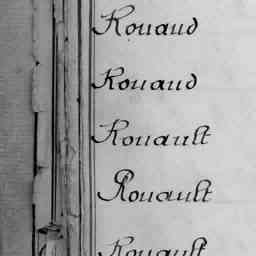 Rouaud
Rouaud
Rouault
Rouault
Rouault